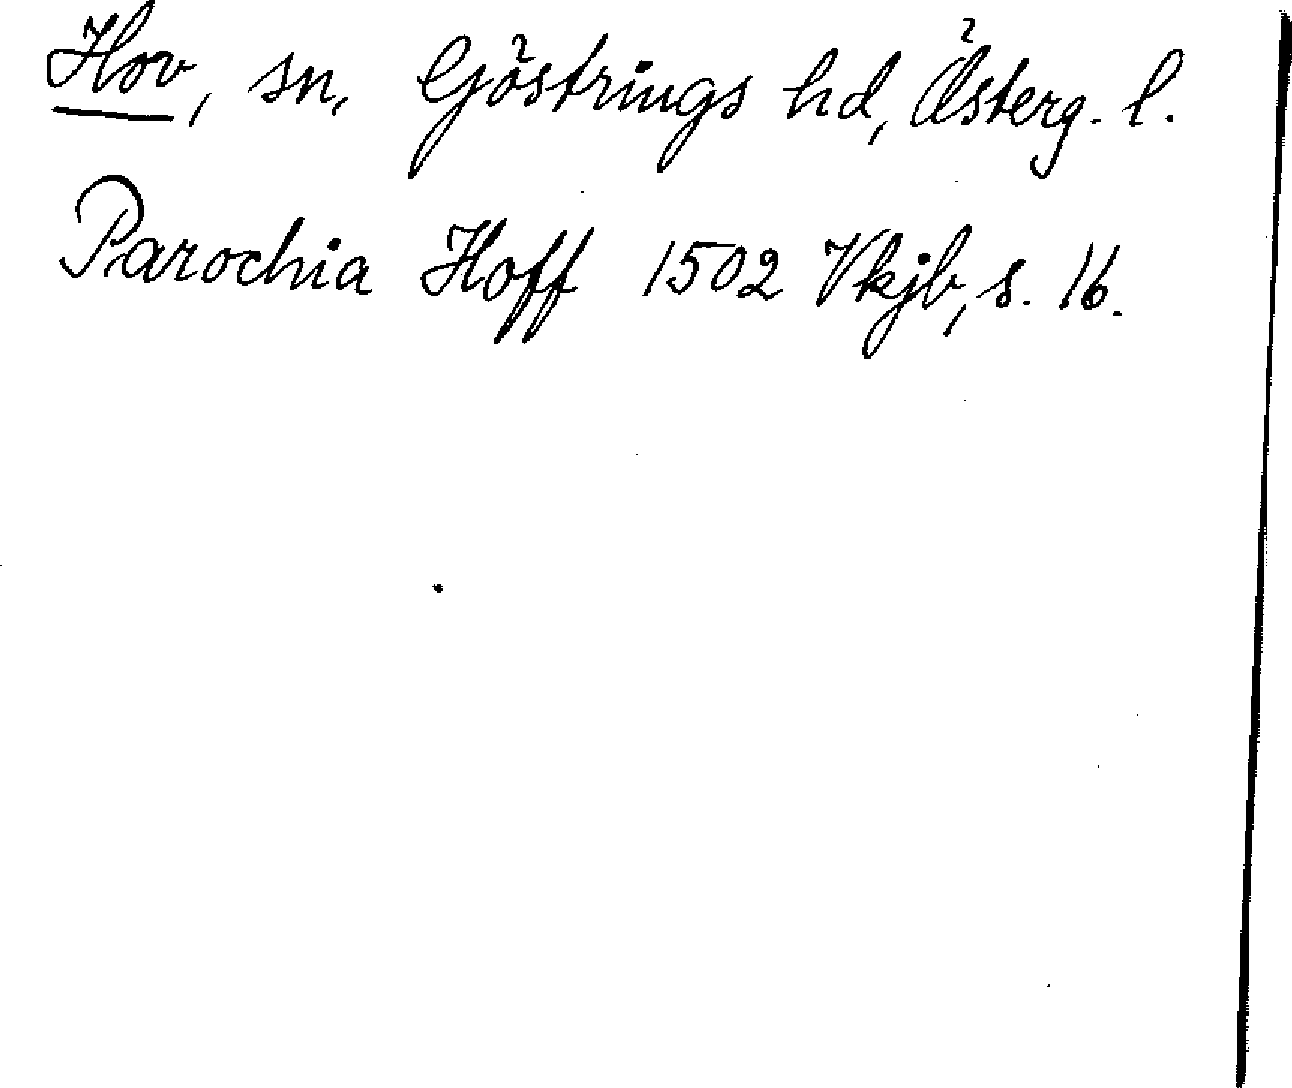 Hov, sn, Göstrings hd, Österg. l.
Parochia Hoff 1502 Vkjb, s. 16.